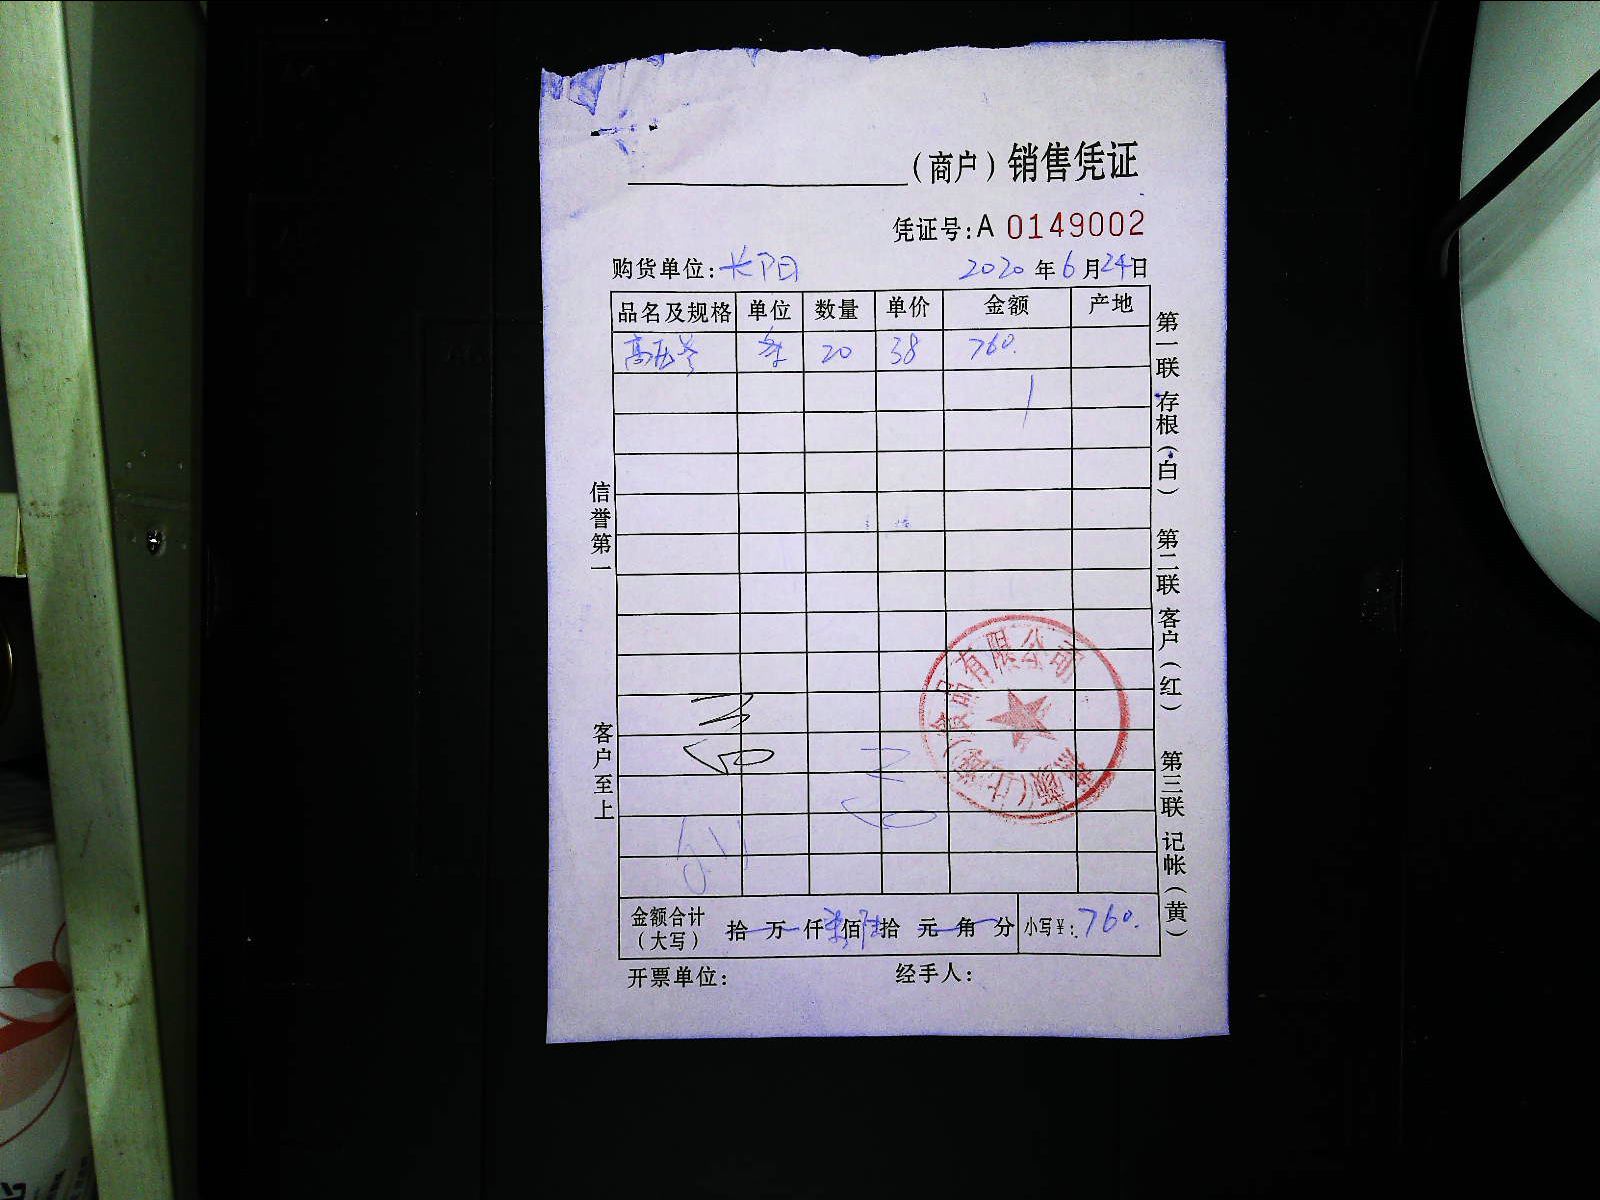 （商户）销售凭证
凭证号:A 0149002
购货单位: 长阳 2020年6月24日
品名及规格 单位 数量 单价 金额 产地
20 38 760.
信誉第一
客户至上
第一联 存根（白） 第二联 客户（红） 第三联 记帐（黄）
食品有限公司
金额合计（大写） 拾 万 仟 柒 佰 陆 拾 元 角 分 小写¥: 760.
开票单位: 经手人: